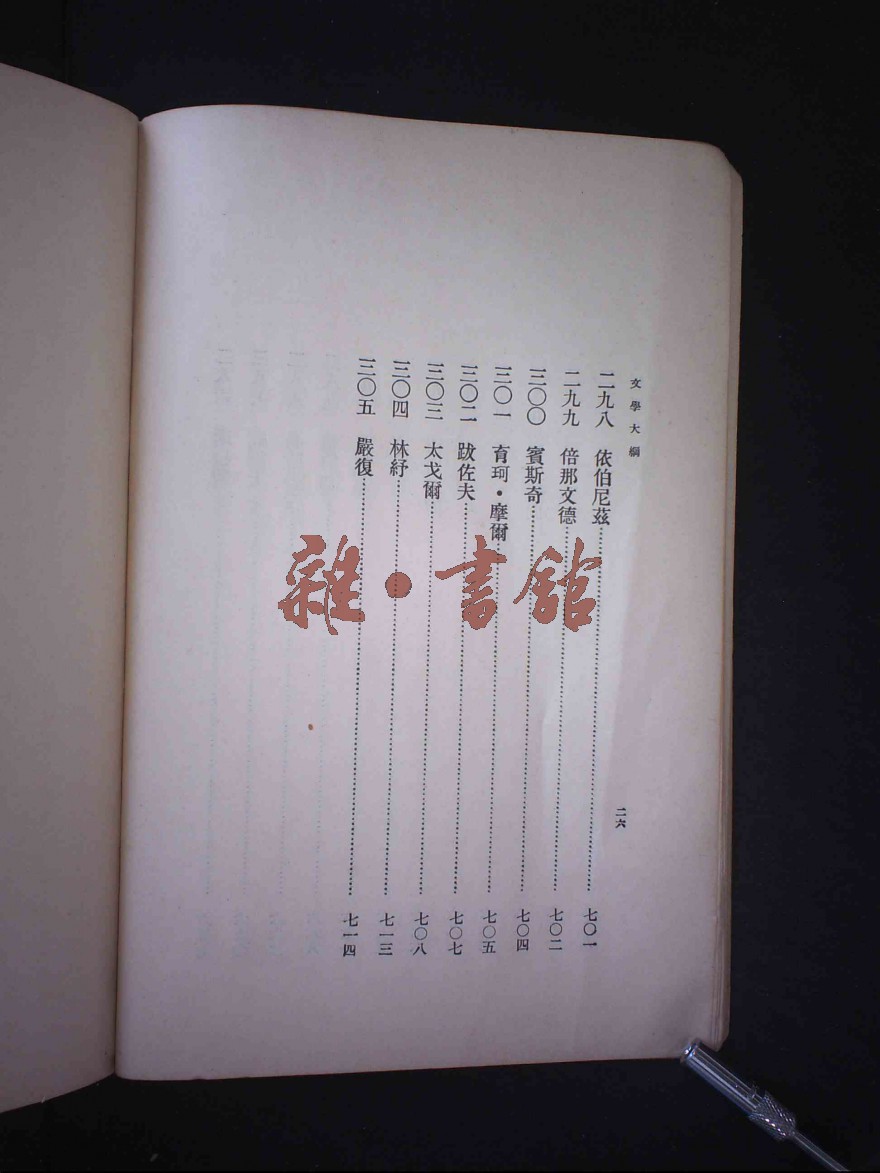 文學大綱
二九八 依伯尼茲⋯⋯七〇一
二九九 倍那文德⋯⋯七〇二
三〇〇 賓斯奇⋯⋯七〇四
三〇一 育珂・摩爾⋯⋯七〇五
三〇二 跋佐夫⋯⋯七〇七
三〇三 太戈爾⋯⋯七〇八
三〇四 林紓⋯⋯七一三
三〇五 嚴復⋯⋯七一四
二六
雜・書館